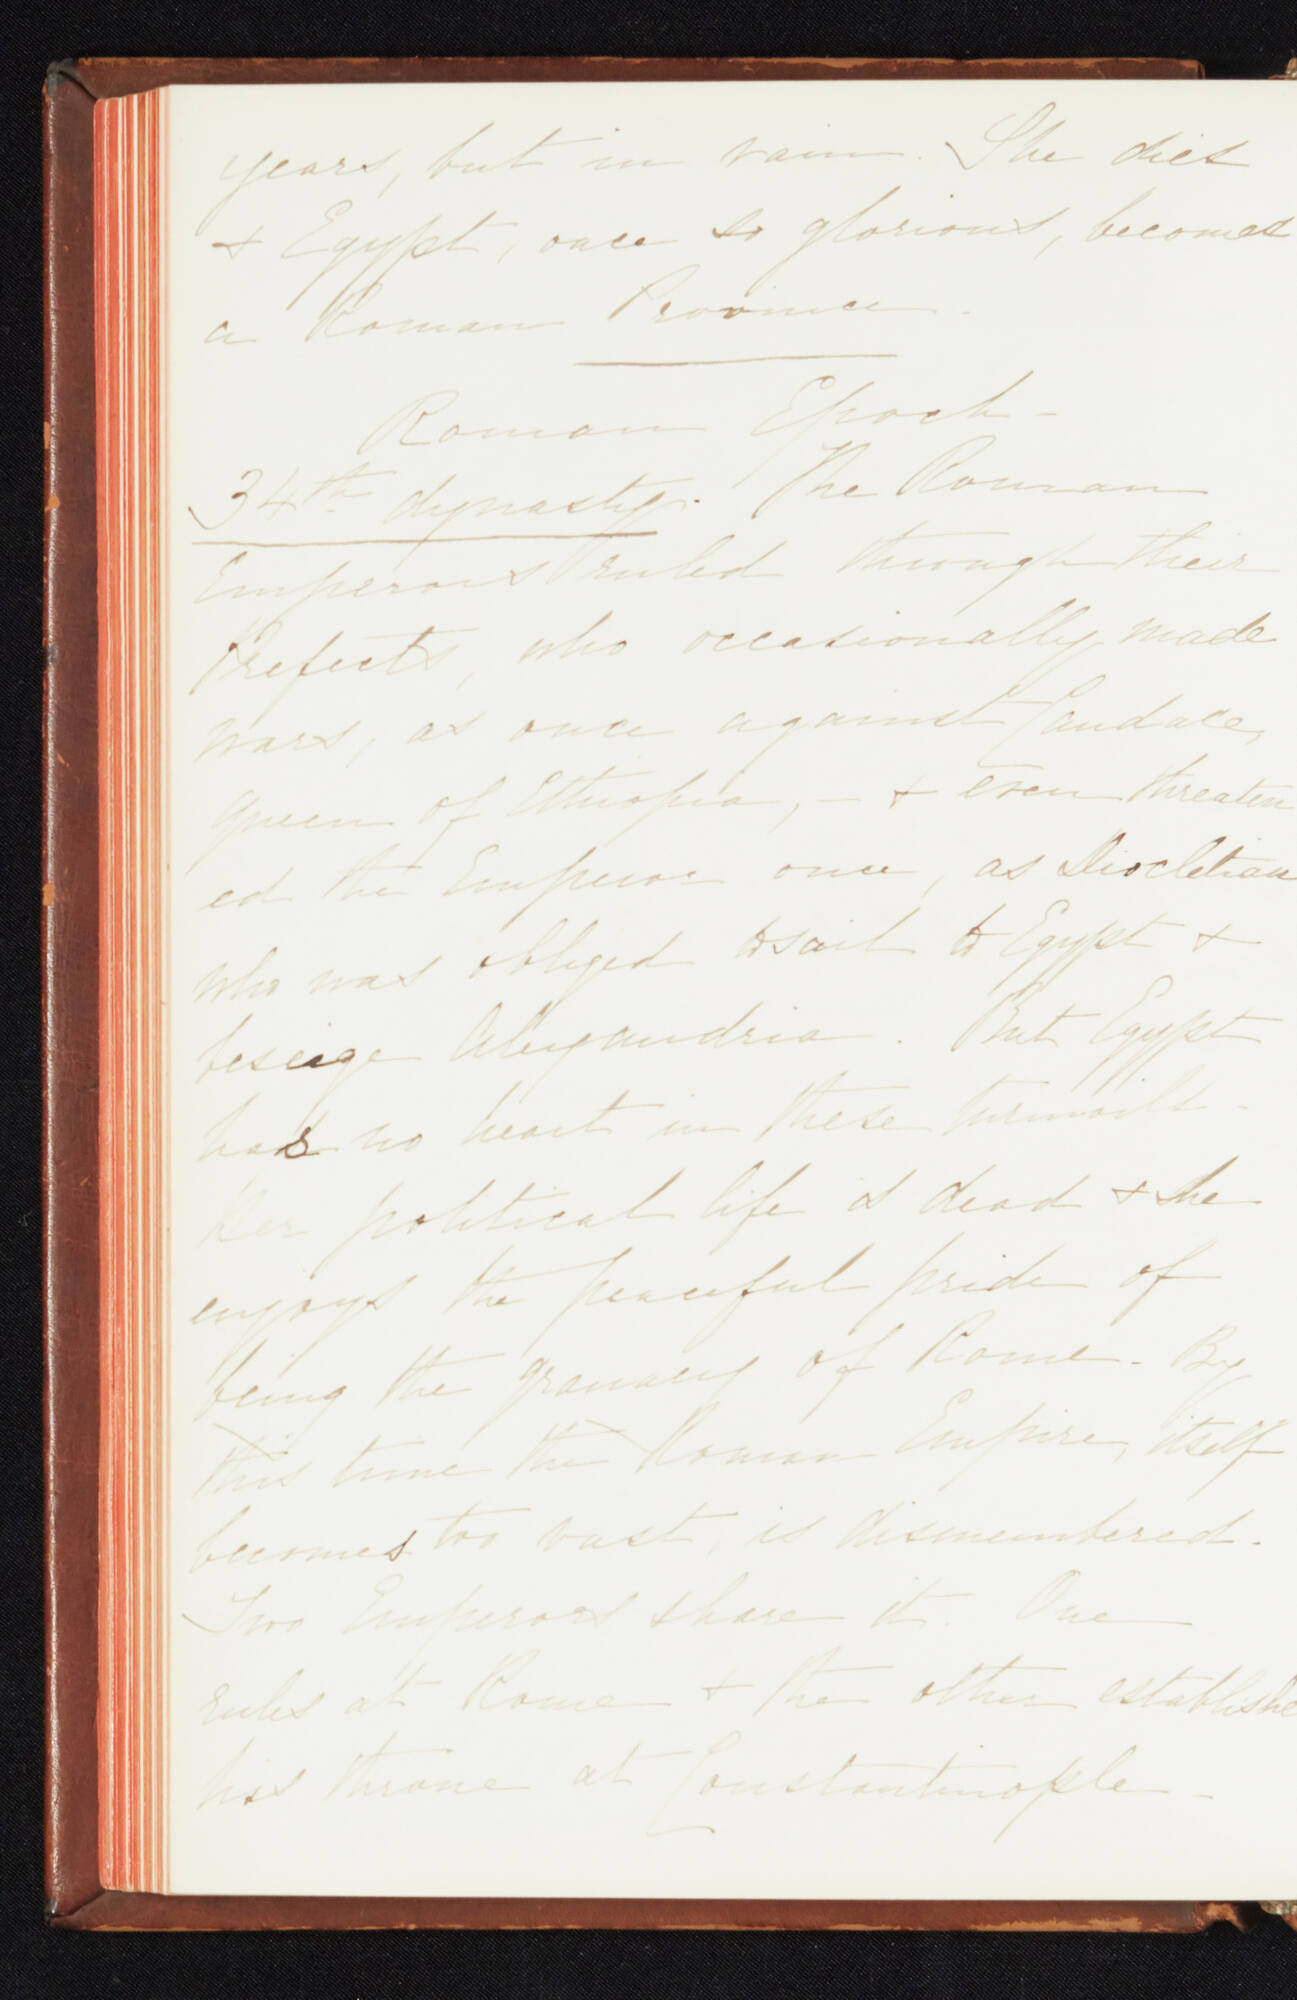 years, but in vain. She dies
+ Egypt, once so glorious, becomes
a Roman Province.
Roman Epoch -
34th dynasty. The Roman
Emperors ruled through their
Prefects, who occasionally made
wars, as once against Candace,
queen of Ethiopia, - + even threaten
ed the Emperor once, as Diocletian
who was obliged to sail to Egypt +
beseige Alexandria. But Egypt
has no heart in these turmoils -
Her political life is dead + she
enjoys the peaceful pride of
being the granary of Rome - By
this time the Roman Empire, itself
becomes too vast, is dismembered.
Two Emperors share it. One
rules at Rome + the other establishe
his throne at Constantinople -